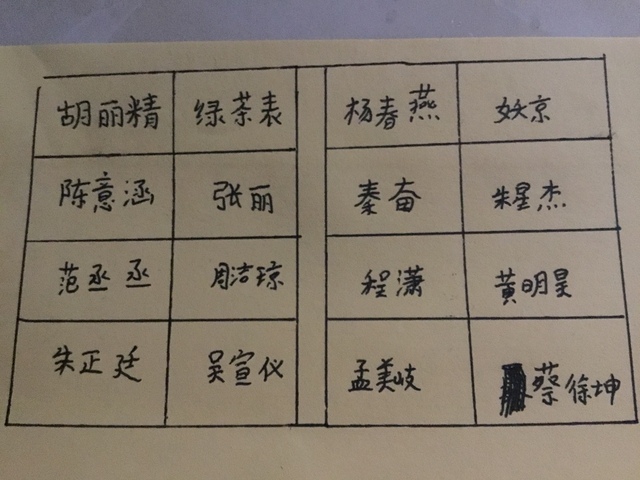 胡丽精 绿茶表 杨春燕 妖京
陈意涵 张丽 秦奋 朱星杰
范丞丞 周洁琼 程潇 黄明昊
朱正廷 吴宣仪 孟美岐 蔡徐坤